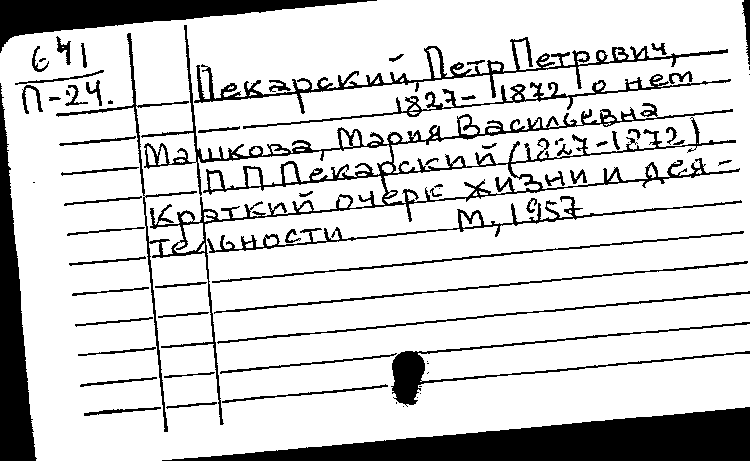 641
П-24.
Пекарский, Петр Петрович,
1827-1872, о нем.
Машкова, Мария Васильевна
П.П. Пекарский (1827-1872).
Краткий очерк жизни и дея-
тельности. М., 1957.